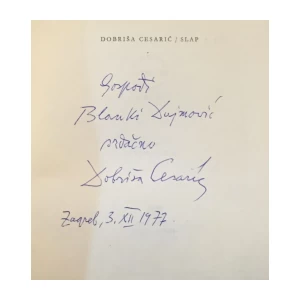 DOBRIŠA CESARIĆ / SLAP
Gospođi
Blanki Dujmović
srdačno
Dobriša Cesarić
Zagreb, 3. XII 1977